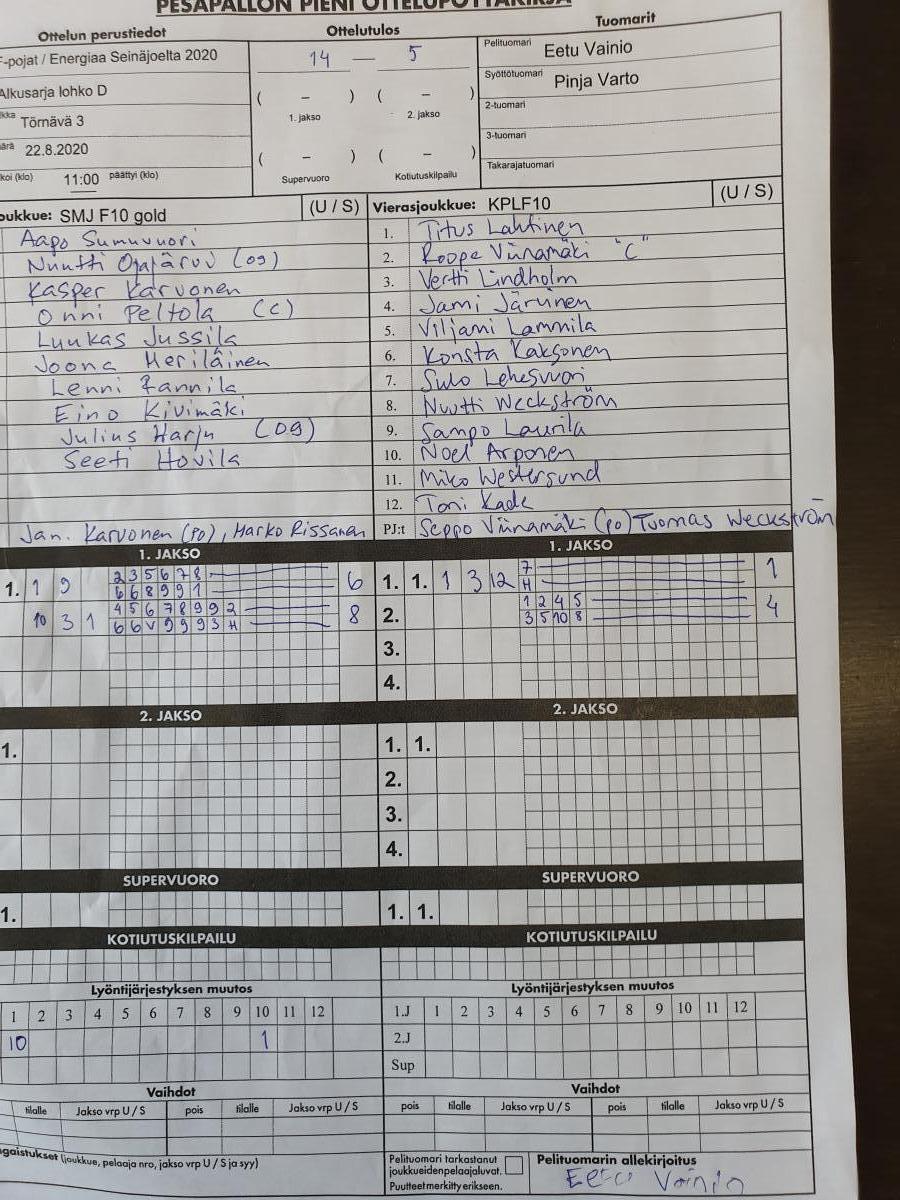 PESÄPALLON PIENI OTTELUPÖYTÄKIRJA
Ottelun perustiedot
F-pojat / Energiaa Seinäjoelta 2020
Alkusarja lohko D
Törnävä 3
22.8.2020
11:00 päättyi (klo)
Ottelutulos
14 — 5
( – ) ( – )
1. jakso 2. jakso
( – ) ( – )
Supervuoro Kotiutuskilpailu
Tuomarit
Pelituomari Eetu Vainio
Syöttötuomari Pinja Varto
2-tuomari
3-tuomari
Takarajatuomari
oukkue: SMJ F10 gold (U / S)
Aapo Sumuvuori
Nuutti Ojajärvi (og)
Kasper Karvonen
Onni Peltola (c)
Luukas Jussila
Joona Meriläinen
Lenni Rannila
Eino Kivimäki
Julius Harju (og)
Seeti Hovila
Jan. Karvonen (po), Marko Rissanen
Vierasjoukkue: KPLF10 (U / S)
1. Titus Lahtinen
2. Roope Viinamäki "C"
3. Vertti Lindholm
4. Jami Järvinen
5. Viljami Lammila
6. Konsta Kaksonen
7. Sulo Lehesvuori
8. Nuutti Weckström
9. Sampo Laurila
10. Noel Arponen
11. Miko Westersund
12. Toni Kade
PJ:t Seppo Viinamäki (po) Tuomas Weckström
1. JAKSO
1. 1 9 2 3 5 6 7 8 6
6 6 8 9 9 1
10 3 1 4 5 6 7 8 9 9 2 8
6 6 V 9 9 9 3 H
1. JAKSO
1. 1. 1 3 12 7 1
H
2. 1 2 4 5 4
3 5 10 8
3.
4.
2. JAKSO
1.
2. JAKSO
1. 1.
2.
3.
4.
SUPERVUORO
1.
SUPERVUORO
1. 1.
KOTIUTUSKILPAILU
KOTIUTUSKILPAILU
Lyöntijärjestyksen muutos
1 2 3 4 5 6 7 8 9 10 11 12
10 1
Lyöntijärjestyksen muutos
1.J 1 2 3 4 5 6 7 8 9 10 11 12
2.J
Sup
Vaihdot
tilalle Jakso vrp U / S pois tilalle Jakso vrp U / S
Vaihdot
pois tilalle Jakso vrp U / S pois tilalle Jakso vrp U / S
ngaistukset (joukkue, pelaaja nro, jakso vrp U / S ja syy)
Pelituomari tarkastanut
joukkueidenpelaajaluvat.
Puutteet merkitty erikseen.
Pelituomarin allekirjoitus
Eetu Vainio